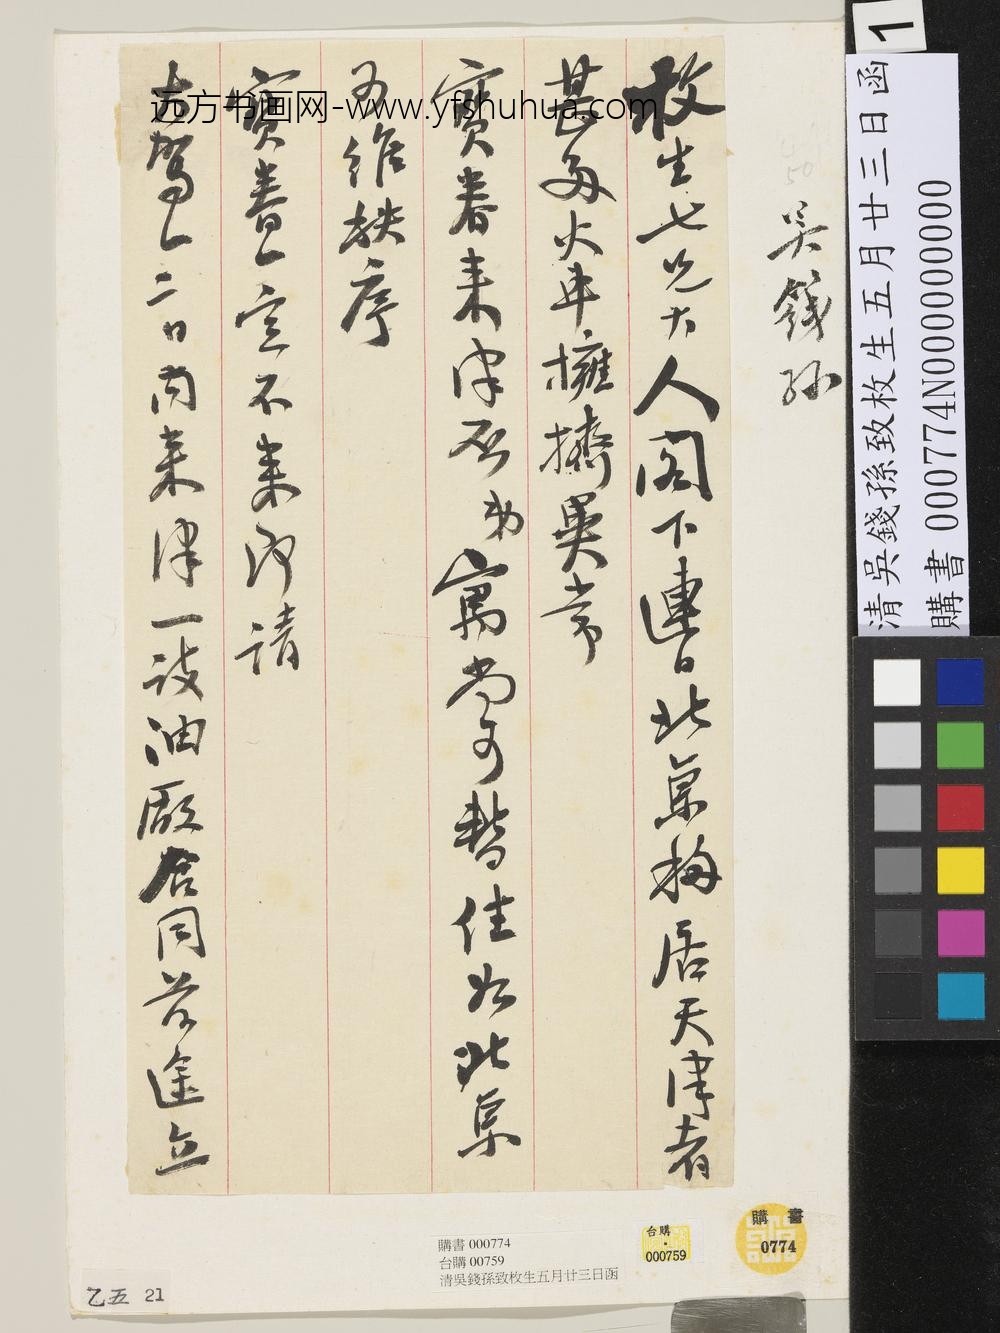 枚生七兄大人閣下連日北京移居天津者
甚多火車擁擠異常
寶眷來津否弟寓尚可暫住如北京
又維秩序
寶眷一定不來即請
大駕一二日內來津一談油廠合同前途立
吳錢孫
远方书画网-www.yfshuhua.com
1
清吳錢孫致枚生五月廿三日函
購書 000774N000000000
購書 000774
台購 00759
清吳錢孫致枚生五月廿三日函
台購
000759
購書
0774
乙五 21